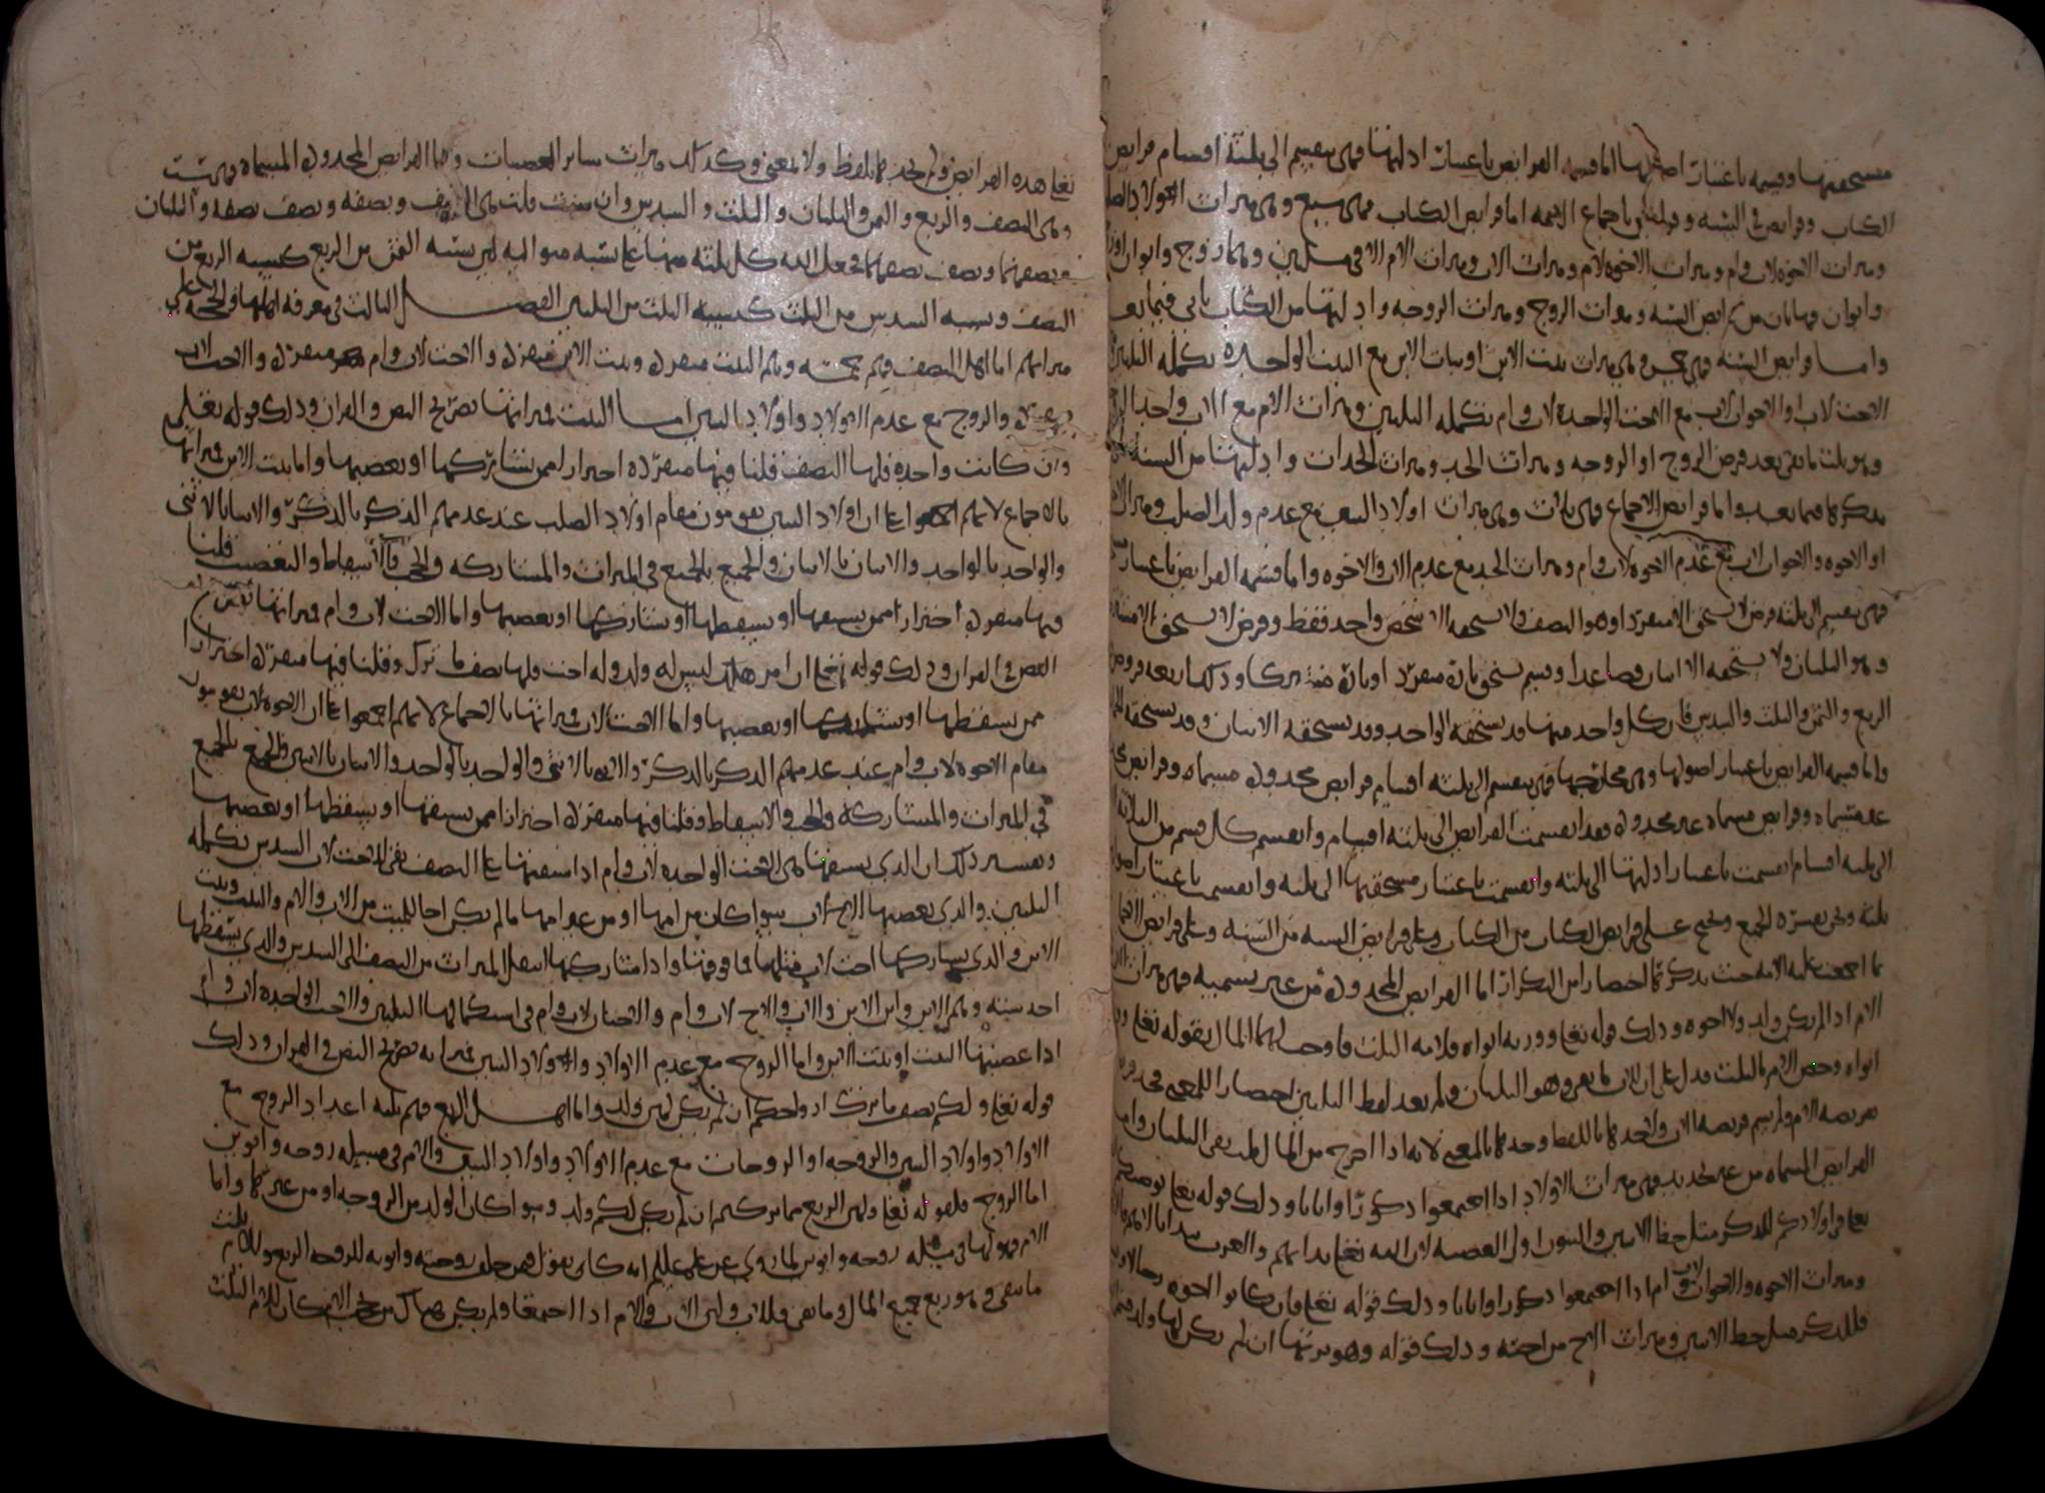 مستحقيها وقسمه باعتبار اصولها اما قسمه الفرايض باعتبار ادلتها فهى تنقسم الى ثلثة اقسام فرايض
الكتاب وفرايض السنه وفرايض باجماع الامه اما فرايض الكتاب فهى سبع وهى ميراث الاولاد
وميراث الاخوه لاب وام وميراث الاخوه لام وميراث الاب وميراث الام الا فى مسلتين وهما زوج وابوان
وابوان فهاتان من فرايض السنه وميراث الزوج وميراث الزوجه وادلتها من الكتاب ياتى فيما بعد
واما فرايض السنه فهى خمس وهى ميراث بنت الابن او بنات الابن مع البنت الواحده تكمله الثلثين
الاخت لاب او الاخوات لاب مع الاخت الواحده لاب وام تكمله الثلثين وميراث الام مع الاب واحد
وهو ثلث ما بقى بعد فرض الزوج او الزوجه وميراث الجد وميراث الجدات وادلتها من السنه
نذكرها فيما بعد واما فرايض الاجماع فهى ثلاث وهى ميراث اولاد البنين مع عدم ولد الصلب وميراث
او الاخوه والاخوات لاب مع عدم الاخوه لاب وام وميراث الجد مع عدم الاب والاخوه واما قسمه الفرايض باعتبار
فهى تنقسم الى ثلثة فرض لا يستحق الا منفردا وهو النصف ولا يستحقه الا شخص واحد فقط وفرض لا يستحق الا
وهو الثلثان ولا يستحقه الا اثنان فصاعدا وقسم يستحق تارة منفردا وتارة مشتركا وذلك اربعه فروض
الربع والثمن والثلث والسدس فان كل واحد منها قد يستحقه الواحد وقد يستحقه الاثنان وقد يستحقه
واما قسمه الفرايض باعتبار اصولها وهى مخارجها فهى تنقسم الى ثلثه اقسام فرايض محدوده مسماه وفرايض
غير مسماه وفرايض مسماه غير محدوده فقد انقسمت الفرايض الى ثلثه اقسام وانقسم كل قسم من الثلاثه
الى ثلثه اقسام انقسمت باعتبار ادلتها الى ثلثه وانقسمت باعتبار مستحقيها الى ثلثه وانقسمت باعتبار
ثلثه ونحن نفسر الجميع ونحتج على فرايض الكتاب من الكتاب وعلى فرايض السنه من السنه وعلى فرايض
بما اجمعت عليه الامه حيث نذكرها اختصارا من التكرار اما الفرايض المحدوده من غير تسميه فهى ميراث
الام اذا لم يكن ولد ولا اخوه وذلك قوله تعالى وورثه ابواه فلامه الثلث فاوجب لهما المال بقوله تعالى
ابواه وخص الام بالثلث فدل على ان للاب ما بقى وهو الثلثان ولم يعد لفظ الثلثين اختصارا
فريضه الام ولم يسم فريضه الاب ولا حدها باللفظ وحدها بالمعنى لانه اذا اخرج من المال ثلث بقى الثلثان واما
الفرايض المسماه من غير تحديد فهى ميراث الاولاد اذا اجتمعوا ذكورا واناثا وذلك قوله تعالى يوصيكم
الله فى اولادكم للذكر مثل حظ الانثيين والبنون اول العصبه لان الله تعالى بدا بهم والعرب تبدا بالاهم
وميراث الاخوه والاخوات لاب وام اذا اجتمعوا ذكورا واناثا وذلك قوله تعالى فان كانوا اخوه رجالا
فللذكر مثل حظ الانثيين وميراث الاخ من اخته وذلك قوله وهو يرثها ان لم يكن لها ولد
هذه الفرايض ولم تحد لا بلفظ ولا بمعنى وكذلك ميراث ساير العصبات واما الفرايض المحدوده المسماه فهى ست
وهى النصف والربع والثمن والثلثان والثلث والسدس وان شئت قلت هى النصف ونصفه ونصف نصفه والثلثان
ونصفهما ونصف نصفهما فجعل الله كل ثلثه منها على نسبه متواليه لان نسبه الثمن من الربع كنسبه الربع من
النصف ونسبه السدس من الثلث كنسبه الثلث من الثلثين الفصل الثالث فى معرفه اهلها والحجه على
ميراثهم اما اهل النصف فهم خمسه وهم البنت منفرده وبنت الابن منفرده والاخت لاب وام منفرده والاخت لاب
منفرده والزوج مع عدم الاولاد واولاد البنين اما البنت فميراثها بصريح النص والقران وذلك قوله تعالى
وان كانت واحده فلها النصف قلنا فيها منفرده احترازا ممن يشاركها او يعصبها واما بنت الابن فميراثها
بالاجماع لانهم اجمعوا على ان اولاد البنين يقومون مقام اولاد الصلب عند عدمهم الذكر بالذكر والانثى بالانثى
والواحد بالواحد والاثنان بالاثنان والجميع بالجميع فى الميراث والمشاركه والحجب والاسقاط والتعصيب قلنا
فيها منفرده احترازا ممن يسبقها او يسقطها او يشاركها او يعصبها واما الاخت لاب وام فميراثها
النص والقران وذلك قوله تعالى ان امرؤ هلك ليس له ولد وله اخت فلها نصف ما ترك وقلنا فيها منفرده احترازا
ممن يسقطها او يشاركها او يعصبها واما الاخت لاب فميراثها بالاجماع لانهم اجمعوا على ان الاخوه لاب يقومون
مقام الاخوه لاب وام عند عدمهم الذكر بالذكر والانثى بالانثى والواحد بالواحد والاثنان بالاثنين والجميع بالجميع
فى الميراث والمشاركه والحجب والاسقاط وقلنا فيها منفرده احترازا ممن يسبقها او يسقطها او يعصبها
وتفسير ذلك ان الذى يسبقها هى الاخت الواحده لاب وام اذا سبقتها على النصف بقى للاخت لاب السدس تكمله
الثلثين والذى يعصبها الاخ لاب سوا كان من امها او من غير امها ما لم يكن اخا للميت من الاب والام والبنت وبنت
الابن والذى يشاركها اخت لاب مثلها فما فوقها واذا شاركتها انتقل الميراث من النصف الى السدس والذى يسقطها
احد سته وهم الابن وابن الابن والاب والاخ لاب وام والاختان لاب وام فى استكمالهما الثلثين والاخت الواحده لاب وام
اذا عصبتها البنت او بنت الابن واما الزوج مع عدم الاولاد واولاد البنين فميراثه بصريح النص والقران وذلك
قوله تعالى ولكم نصف ما ترك ازواجكم ان لم يكن لهن ولد واما اهل الربع فهم ثلثه اعداد الزوج مع
الاولاد واولاد البنين والزوجه او الزوجات مع عدم الاولاد واولاد البنين والام فى مسله زوجه وابوين
اما الزوج فلقوله تعالى ولهن الربع مما تركتم ان لم يكن لكم ولد وسوا كان الولد من الزوجه او من غيرها واما
الام فهو لها فى مسله زوجه وابوين لما روى عن على عليلم انه كان يقول فمن خلف زوجته وابويه للزوجه الربع وللام ثلث
ما بقى وهو ربع جميع المال وما بقى فللاب ولان الاب والام اذا اجتمعا ولم يكن هناك من يحجب الام كان للام الثلث